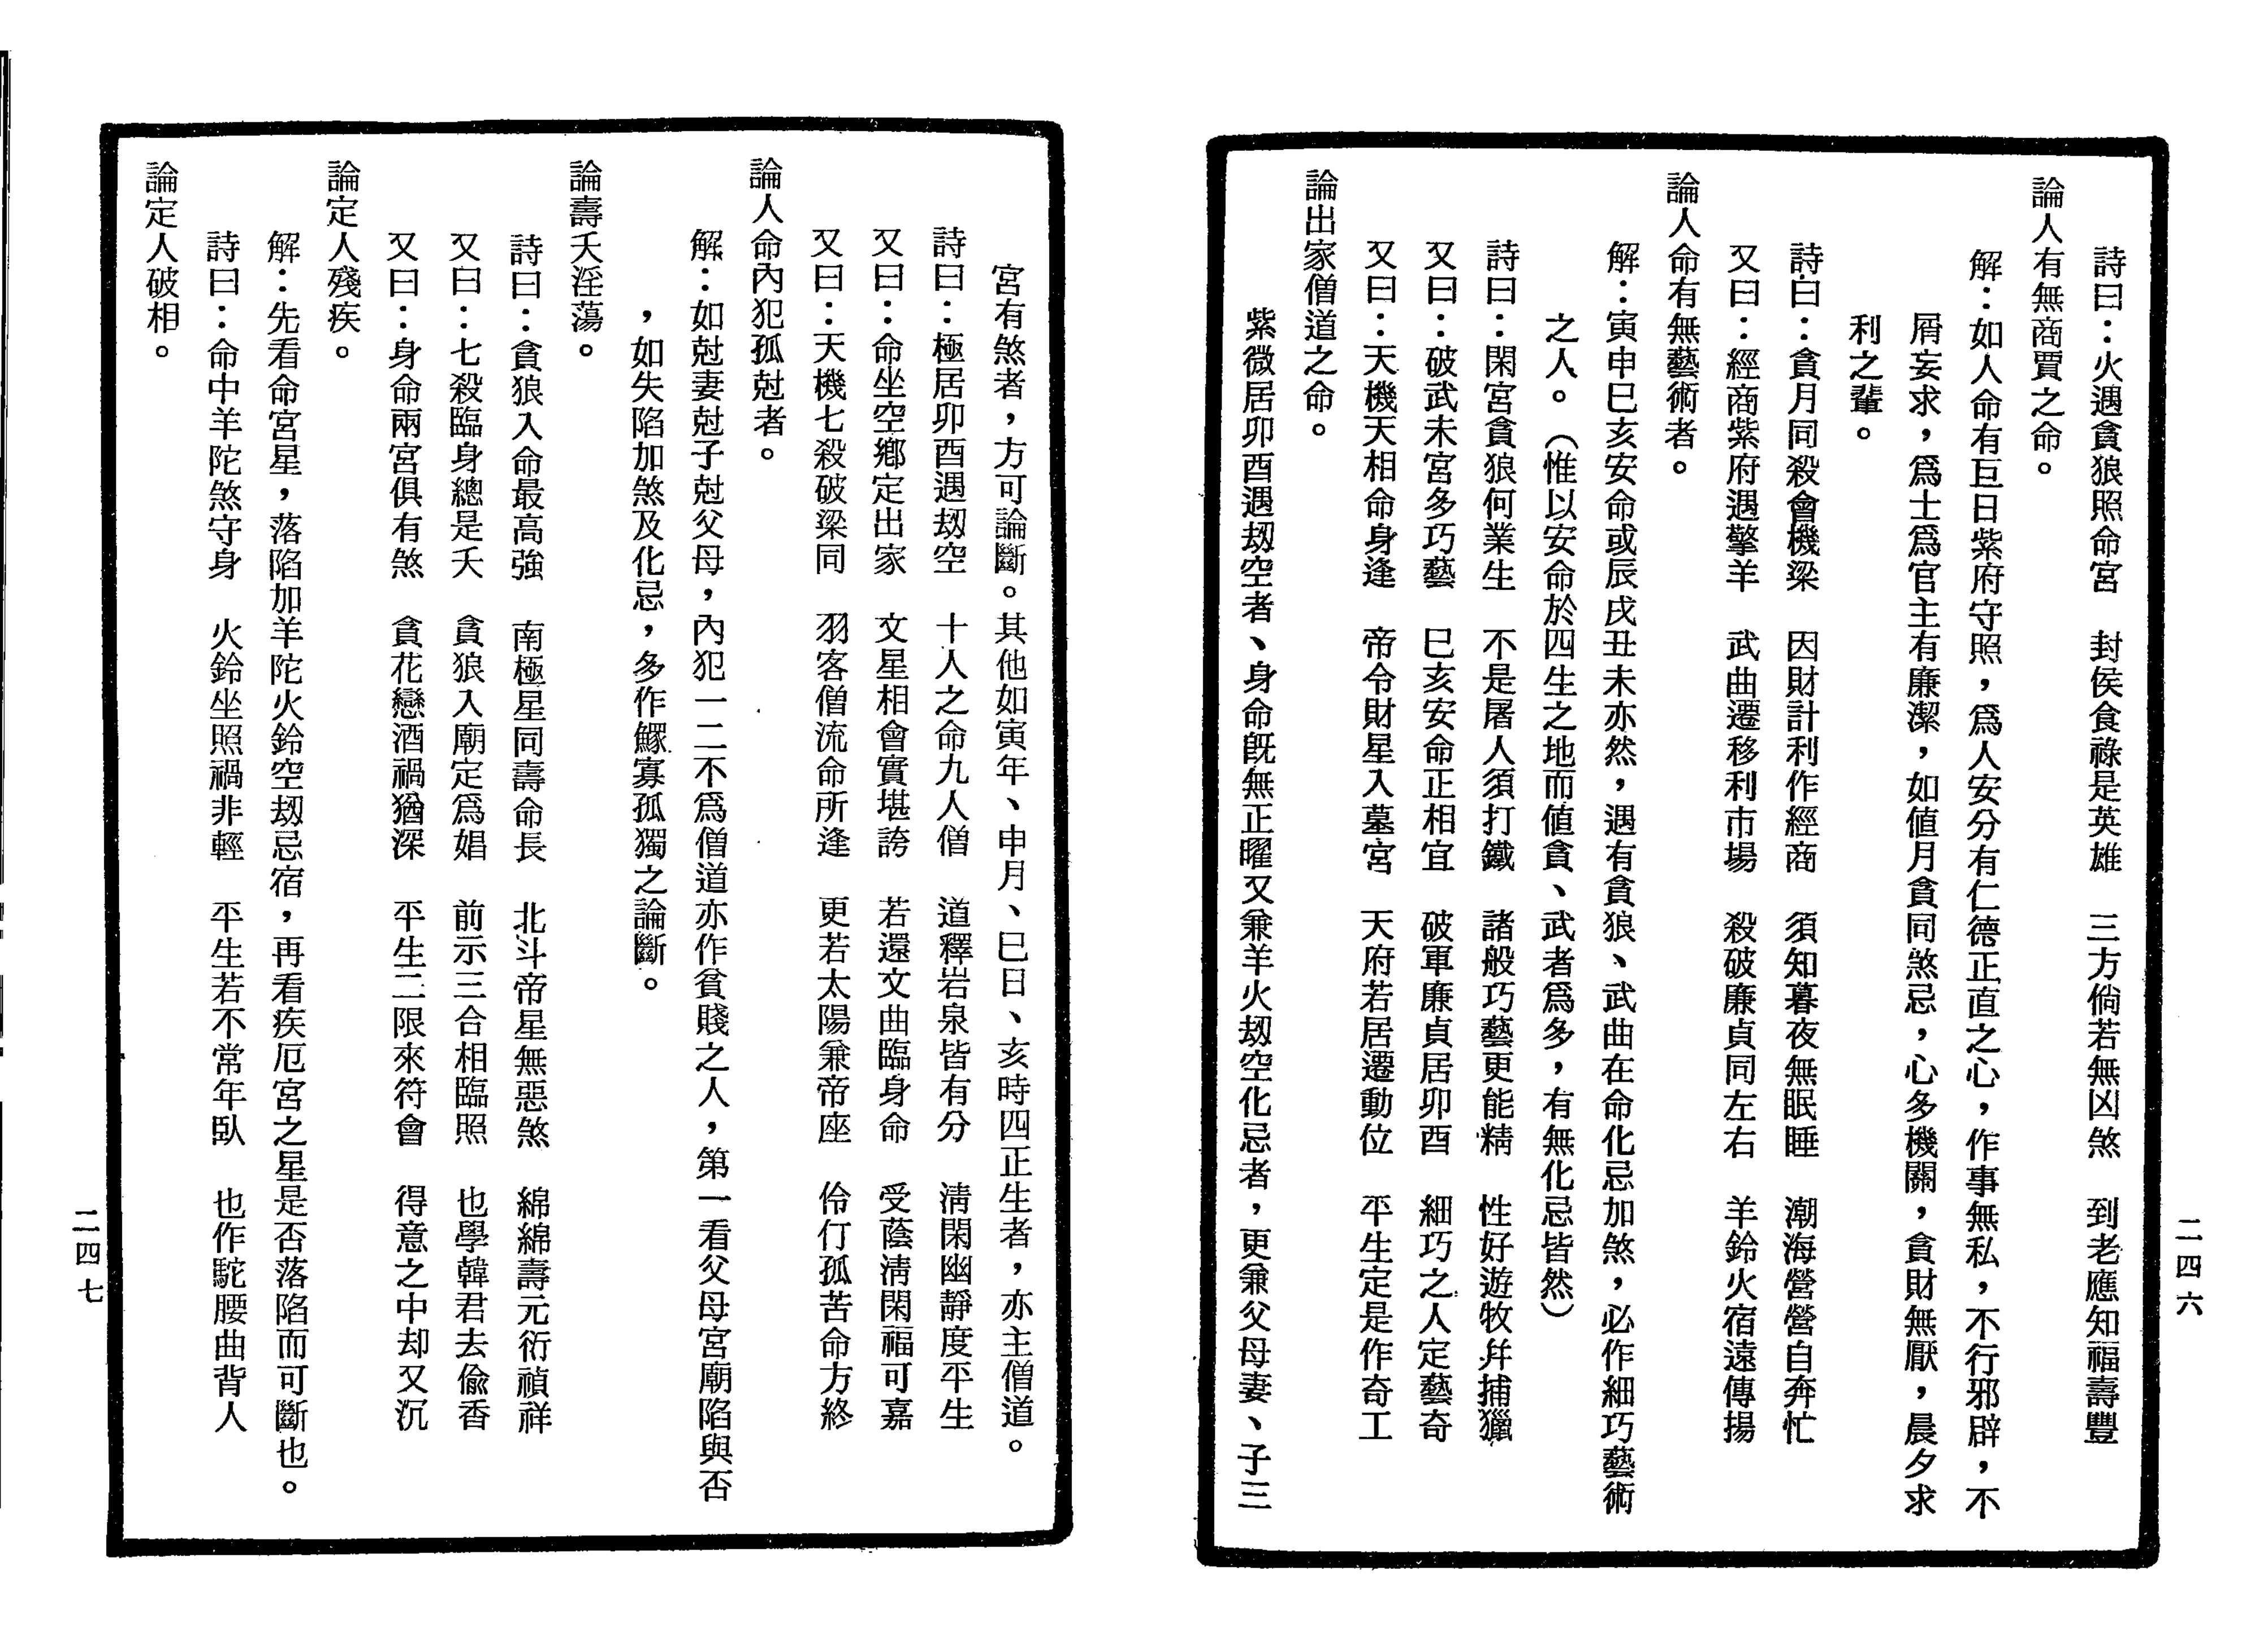 詩曰：火遇貪狼照命宮　封侯食祿是英雄　三方倘若無凶煞　到老應知福壽豐
論人有無商賈之命。
解：如人命有巨日紫府守照，爲人安分有仁德正直之心，作事無私，不行邪辟，不
屑妄求，爲士爲官主有廉潔，如値月貪同煞忌，心多機關，貪財無厭，晨夕求
利之輩。
詩曰：貪月同殺會機梁　因財計利作經商　須知暮夜無眠睡　潮海營營自奔忙
又曰：經商紫府遇擎羊　武曲遷移利市場　殺破廉貞同左右　羊鈴火宿遠傳揚
論人命有無藝術者。
解：寅申巳亥安命或辰戌丑未亦然，遇有貪狼、武曲在命化忌加煞，必作細巧藝術
之人。（惟以安命於四生之地而値貪、武者爲多，有無化忌皆然）
詩曰：閑宮貪狼何業生　不是屠人須打鐵　諸般巧藝更能精　性好遊牧幷捕獵
又曰：破武未宮多巧藝　巳亥安命正相宜　破軍廉貞居卯酉　細巧之人定藝奇
又曰：天機天相命身逢　帝令財星入墓宮　天府若居遷動位　平生定是作奇工
論出家僧道之命。
紫微居卯酉遇刼空者、身命旣無正曜又兼羊火刼空化忌者，更兼父母妻、子三
二四六
宮有煞者，方可論斷。其他如寅年、申月、巳日、亥時四正生者，亦主僧道。
詩曰：極居卯酉遇刼空　十人之命九人僧　道釋岩泉皆有分　淸閑幽靜度平生
又曰：命坐空鄉定出家　文星相會實堪誇　若還文曲臨身命　受蔭淸閑福可嘉
又曰：天機七殺破梁同　羽客僧流命所逢　更若太陽兼帝座　伶仃孤苦命方終
論人命內犯孤尅者。
解：如尅妻尅子尅父母，內犯一二不爲僧道亦作貧賤之人，第一看父母宮廟陷與否
，如失陷加煞及化忌，多作鰥寡孤獨之論斷。
論壽夭淫蕩。
詩曰：貪狼入命最高強　南極星同壽命長　北斗帝星無惡煞　綿綿壽元衍禎祥
又曰：七殺臨身總是夭　貪狼入廟定爲娼　前示三合相臨照　也學韓君去偸香
又曰：身命兩宮俱有煞　貪花戀酒禍猶深　平生二限來符會　得意之中却又沉
論定人殘疾。
解：先看命宮星，落陷加羊陀火鈴空刼忌宿，再看疾厄宮之星是否落陷而可斷也。
詩曰：命中羊陀煞守身　火鈴坐照禍非輕　平生若不常年臥　也作駝腰曲背人
論定人破相。
二四七